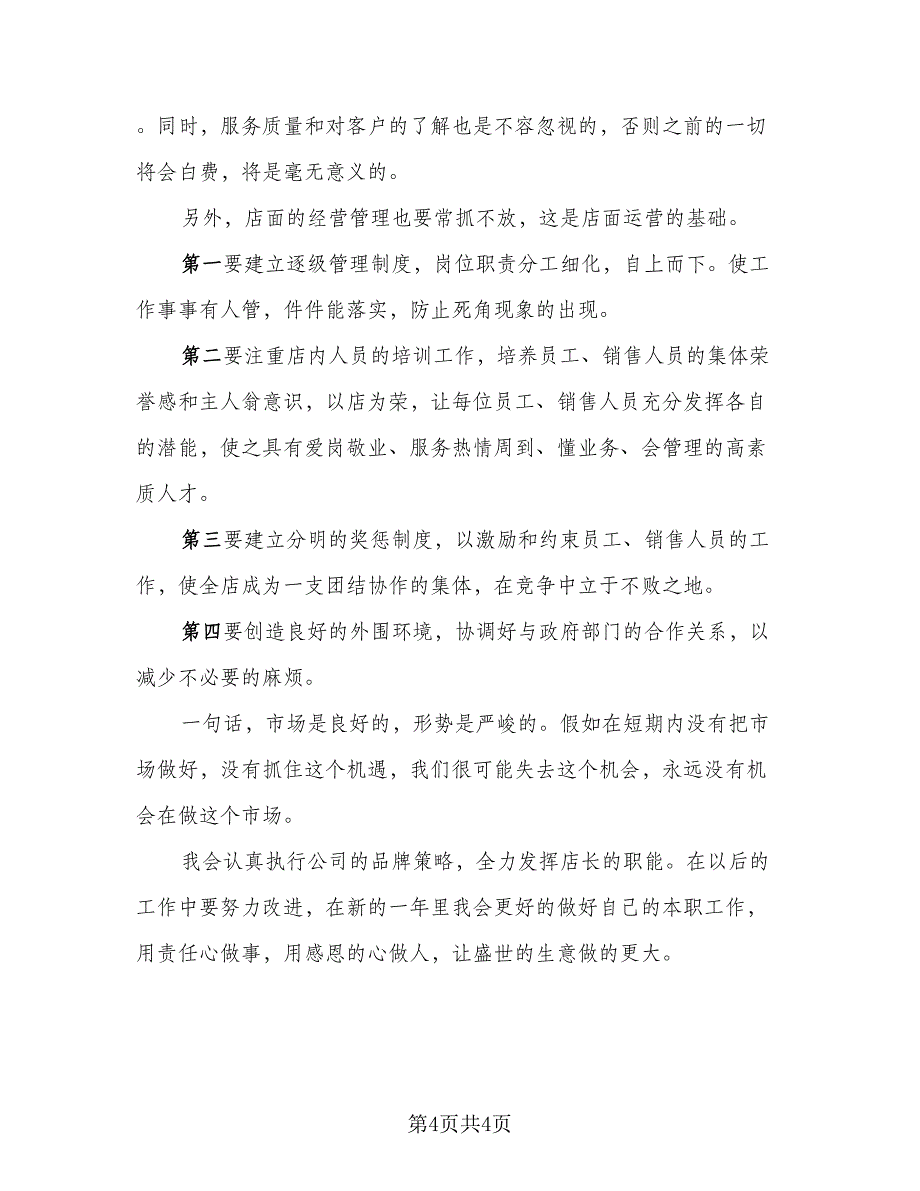 。同时，服务质量和对客户的了解也是不容忽视的，否则之前的一切
将会白费，将是毫无意义的。
另外，店面的经营管理也要常抓不放，这是店面运营的基础。
第一要建立逐级管理制度，岗位职责分工细化，自上而下。使工
作事事有人管，件件能落实，防止死角现象的出现。
第二要注重店内人员的培训工作，培养员工、销售人员的集体荣
誉感和主人翁意识，以店为荣，让每位员工、销售人员充分发挥各自
的潜能，使之具有爱岗敬业、服务热情周到、懂业务、会管理的高素
质人才。
第三要建立分明的奖惩制度，以激励和约束员工、销售人员的工
作，使全店成为一支团结协作的集体，在竞争中立于不败之地。
第四要创造良好的外围环境，协调好与政府部门的合作关系，以
减少不必要的麻烦。
一句话，市场是良好的，形势是严峻的。假如在短期内没有把市
场做好，没有抓住这个机遇，我们很可能失去这个机会，永远没有机
会在做这个市场。
我会认真执行公司的品牌策略，全力发挥店长的职能。在以后的
工作中要努力改进，在新的一年里我会更好的做好自己的本职工作，
用责任心做事，用感恩的心做人，让盛世的生意做的更大。
第4页共4页